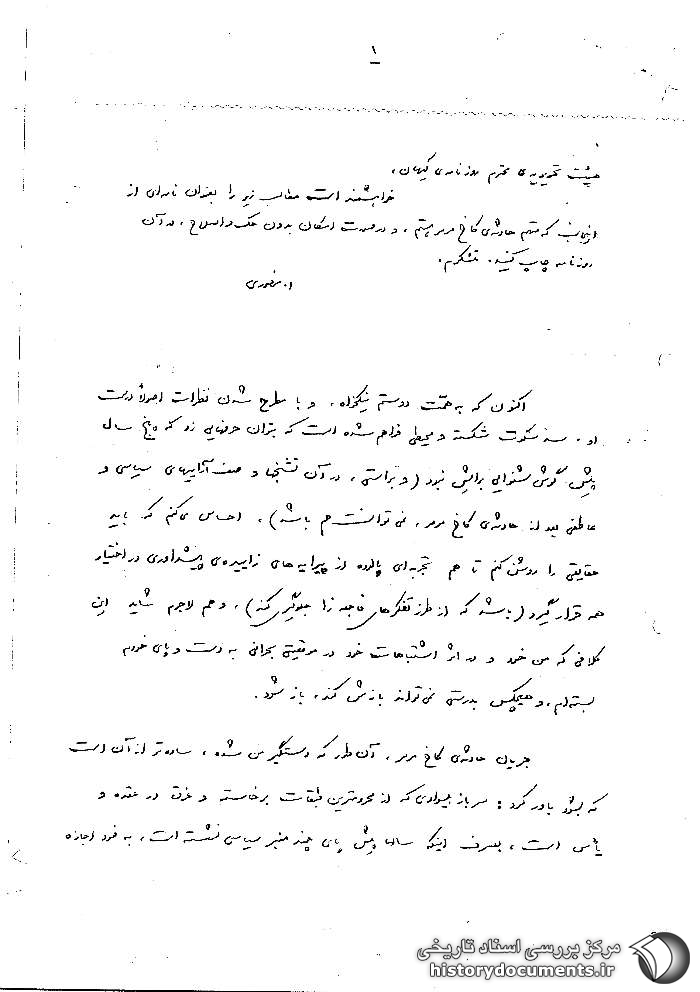 ۱
هیئت تحریریه‌ی محترم روزنامه‌ی کیهان،
خواهشمند است مطالب زیر را بعنوان نامه‌ای از
اینجانب که متهم حادثه‌ی کاخ مرمر هستم، و در صورت امکان بدون حک و اصلاح، در آن
روزنامه چاپ کنید. متشکرم.
ا. منصوری
اکنون که به همت دوستم نیکخواه، و با مطرح شدن نظرات اصولاً درست
او، سد سکوت شکسته و محیطی فراهم شده است که بتوان حرفهایی زد که پنج سال
پیش گوش شنوایی برایش نبود (و براستی، در آن تشنجها و صف آراییهای سیاسی و
عاطفی بعد از حادثه‌ی کاخ مرمر، نمی‌توانست هم باشد)، احساس می‌کنم که باید
حقایقی را روشن کنم تا هم تجربه‌ای پالوده از پیرایه‌های زاییده‌ی پیشداوری در اختیار
همه قرار گیرد (باشد که از طرز تفکرهای فاجعه زا جلوگیری کند)، و هم لاجرم شاید این
کلافی که من خود و در اثر اشتباهات خود در موقعیتی بحرانی به دست و پای خودم
بسته‌ام، و هیچکس بدرستی نمی‌تواند بازش کند، باز شود.
جریان حادثه‌ی کاخ مرمر، آن طور که دستگیر من شده، ساده‌تر از آن است
که بشود باور کرد: سرباز بیسوادی که از محرومترین طبقات برخاسته و غرق در عقده و
یأس است، بصرف اینکه سالها پیش پای چند منبر سیاسی نشسته است، به خود اجازه
مرکز بررسی اسناد تاریخی
historydocuments.ir